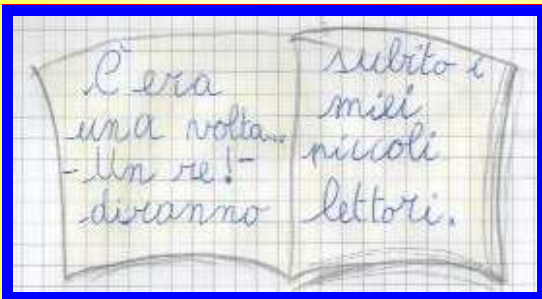 C'era
una volta...
- Un re! -
diranno
subito i
miei
piccoli
lettori.